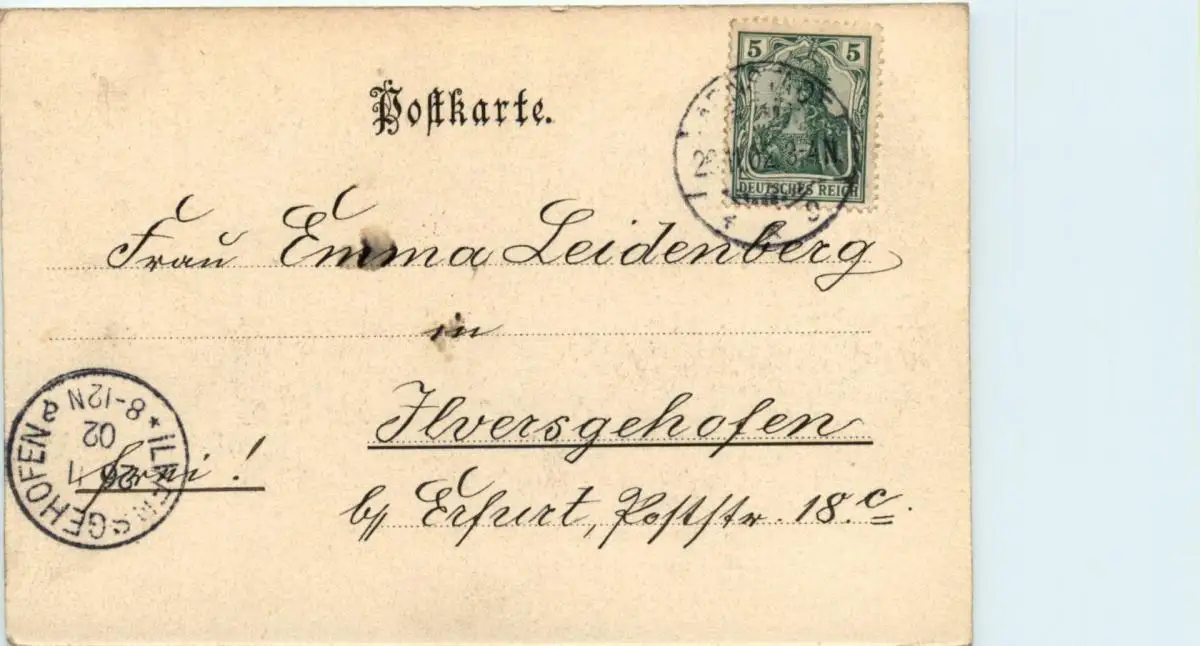 Postkarte.
5 5
DEUTSCHES REICH
02 3-4N
Frau Emma Leidenberg
in
Ilversgehofen
b/ Erfurt, Poststr. 18.c.
frei!
* ILVERSGEHOFEN
02
8-12N